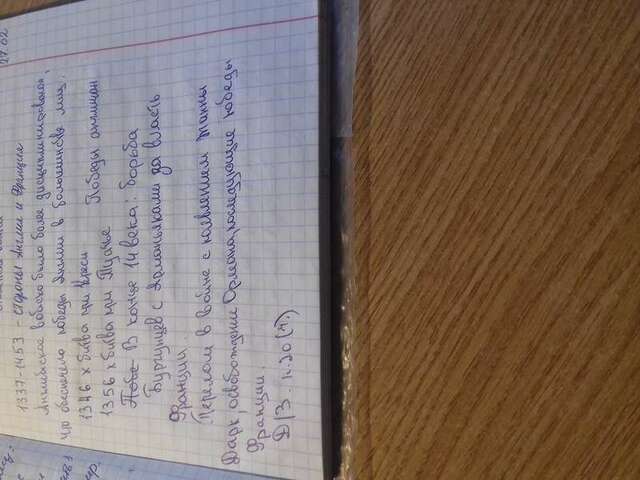 27.02
1337-1453 - стороны Англии и Франции
Английское войско было более дисциплинированным,
что обеспечило победы Англии в большинстве битв.
1346 х битва при Креси
1356 х битва при Пуатье Победы англичан
В конце 14 века: борьба
Бургундцев с Арманьяками за власть
Франции.
Перелом в войне с появлением Жанны
Дарк, освобождение Орлеана, последующие победы
Франции.
Д/З: п.20 (ч).